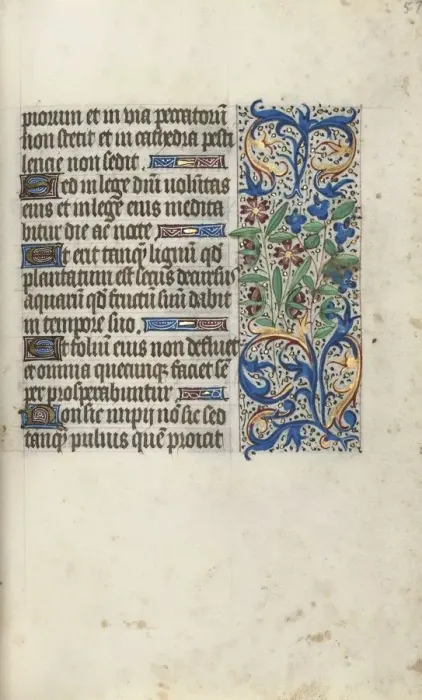 57
piorum et in via peccatoru̅
non stetit et in cathedra pesti
lencie non sedit.
Sed in lege dn̅i volu̅tas
eius et in lege eius medita
bitur die ac nocte
Et erit tanq̅ lignu̅ qd̅
plantatum est secus decursus
aquaru̅ qd̅ fructu̅ suu̅ dabit
in tempore suo.
Et foliu̅ eius non defluet
et omnia quecunq̅ faciet se̅
per prosperabuntur
Non sic impij no̅ sic sed
tanq̅ puluis que̅ proicit